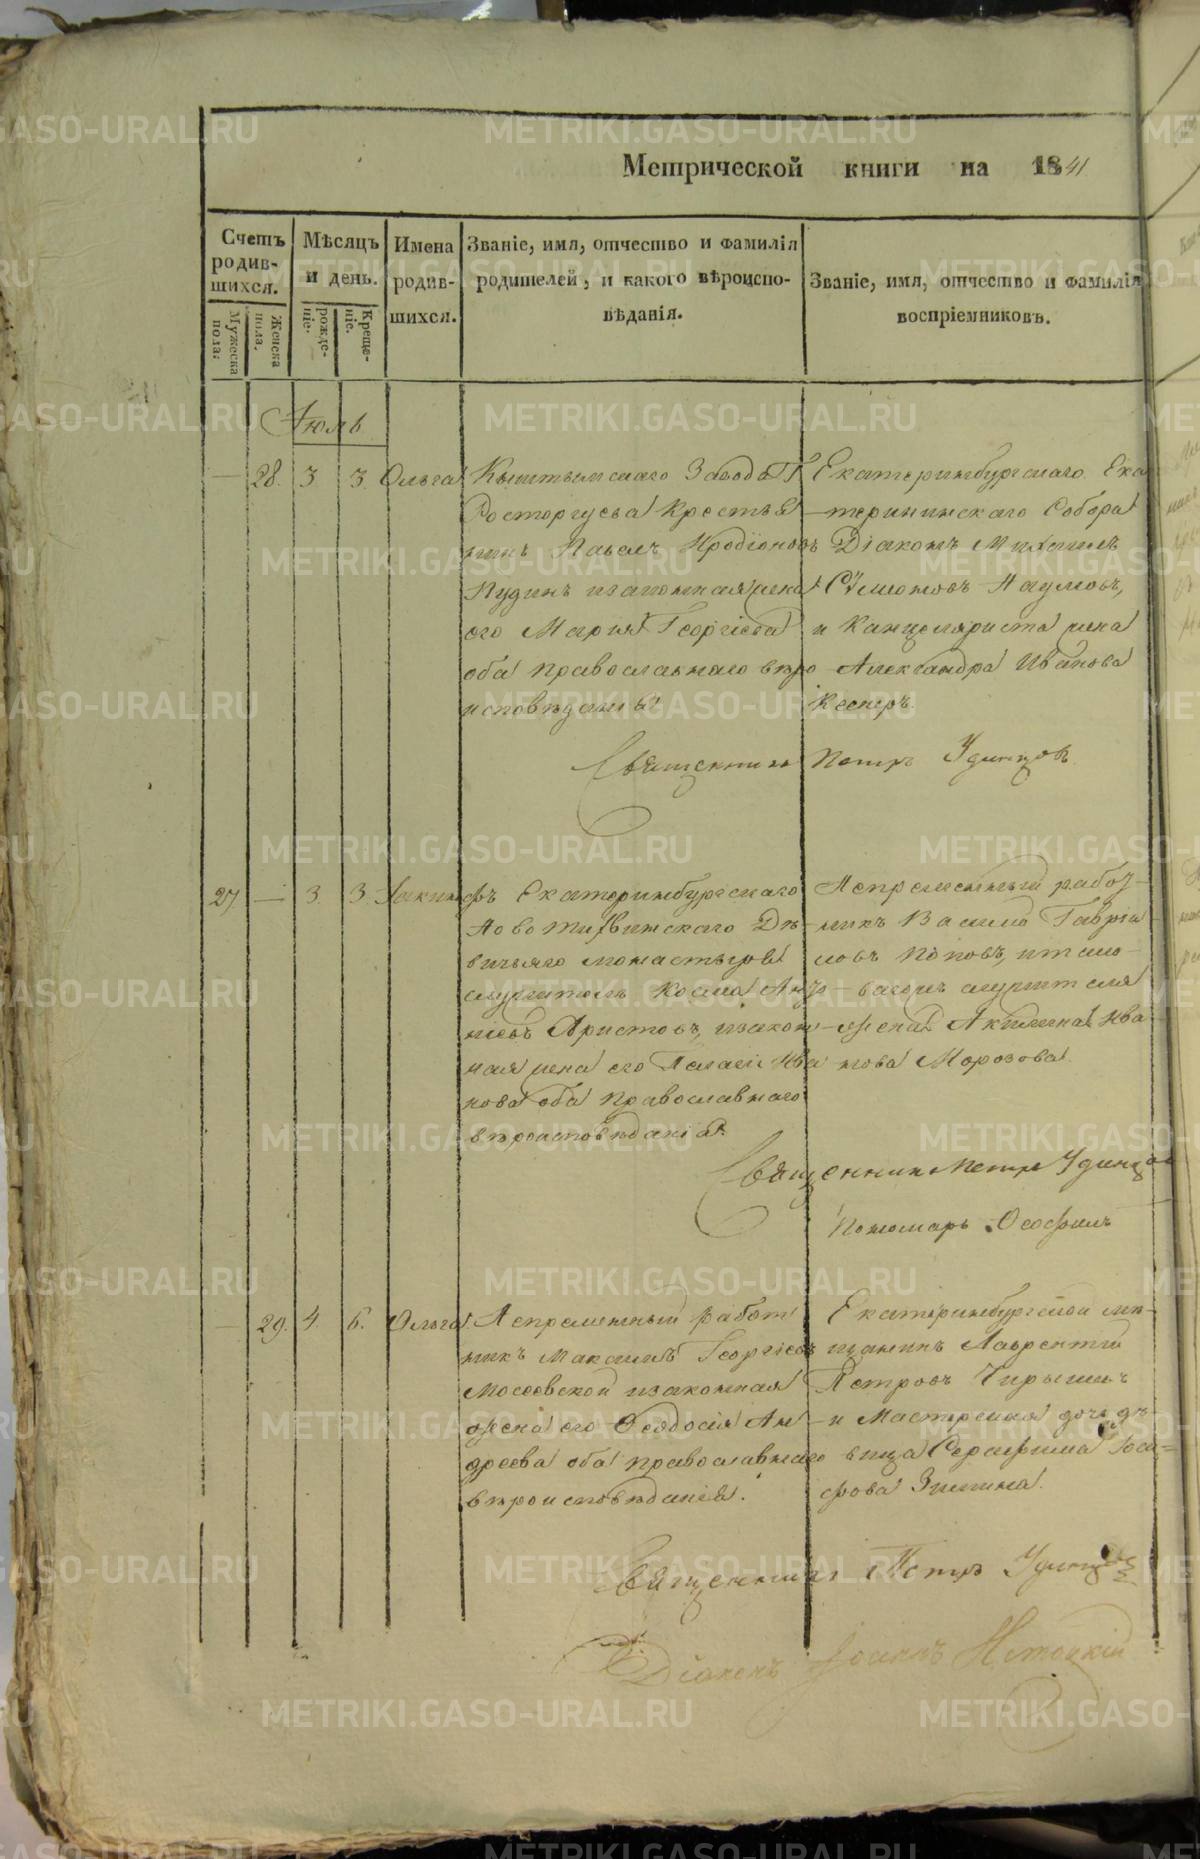 Метрической книги на 1841
Счетъ родив-шихся.
Мужеска пола.
Женска пола.
Мѣсяцъ и день.
рожде-ніе.
Креще-ніе.
Имена родив-шихся.
Званіе, имя, отчество и фамилія
родителей, и какого вѣроиспо-
вѣданія.
Званіе, имя, отчество и фамилія
воспріемниковъ.
Июль
— 28. 3 3 Ольга
Кыштымскаго Завода Г.
Росторгуева Крестья
нинъ Павелъ Иродіоновъ
Пудинъ и законная жена
его Марія Георгіева
оба православнаго вѣро
исповѣданія
Екатеринбургскаго Ека
терининскаго Собора
Діаконъ Михаилъ
Симеоновъ Наумовъ,
и Канцеляриста жена
Александра Иванова
Священникъ Петръ Удинцов
27 — 3 3 Іакинфъ
Екатеринбургскаго
Ново Тихвинскаго Дѣ
вичьяго монастыря
служитель Косма
Аристовъ, и закон
ная жена его Пелагія Ива
нова оба православнаго
вѣроисповѣданія.
Непременный работ
никъ Василій Гавріи
ловъ Поповъ, и
служителя
жена Акилина Ива
нова Морозова.
Священник Петръ Удинцов
Пономарь Ѳеофилъ
— 29. 4. 6. Ольга.
Непременный работ
никъ Максимъ Георгіевъ
Мосеевской и законная
жена его Ѳеодосія Ан
дреева оба православнаго
вѣроисповѣданія.
Екатеринбургской мѣ
щанинъ Лаврентій
Петровъ
и Мастерская дочь дѣ
вица Серафима Іоси
фова Зимина.
Священникъ Петръ Удинцов
Діаконъ Іоаннъ
METRIKI.GASO-URAL.RU